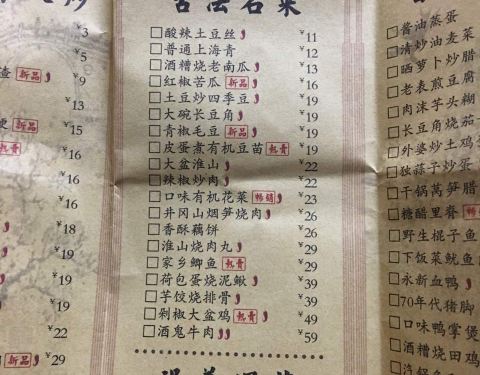 ¥3
¥5
¥9
查 新品
¥13
新品 ¥15
热膏 ¥16
¥16
¥16
¥18
¥19
¥19
¥19
¥22
新品 ¥29
酸辣土豆丝 ¥11
普通上海青 ¥12
酒糟烧老南瓜 ¥13
红椒苦瓜 新品 ¥16
土豆炒四季豆 ¥19
大碗长豆角 ¥19
青椒毛豆 新品 ¥19
皮蛋煮有机豆苗 ¥19
大盆淮山 ¥22
辣椒炒肉 ¥22
口味有机花菜 畅销 ¥23
井冈山烟笋烧肉 ¥26
香酥藕饼 ¥26
淮山烧肉丸 ¥29
家乡鲫鱼 ¥29
荷包蛋烧泥鳅 ¥39
芋饺烧排骨 ¥39
剁椒大盆鸡 ¥49
酒鬼牛肉 ¥59
酱油蒸蛋
清炒油麦菜
晒萝卜炒腊
老表煎豆腐
肉沫芋头糊
长豆角烧茄
外婆炒土鸡
独蒜子炒蛋
干锅莴笋腊
糖醋里脊 畅销
野生棍子鱼
下饭菜鱿鱼
永新血鸭
70年代猪脚
口味鸭掌煲
酒糟烧田鸡